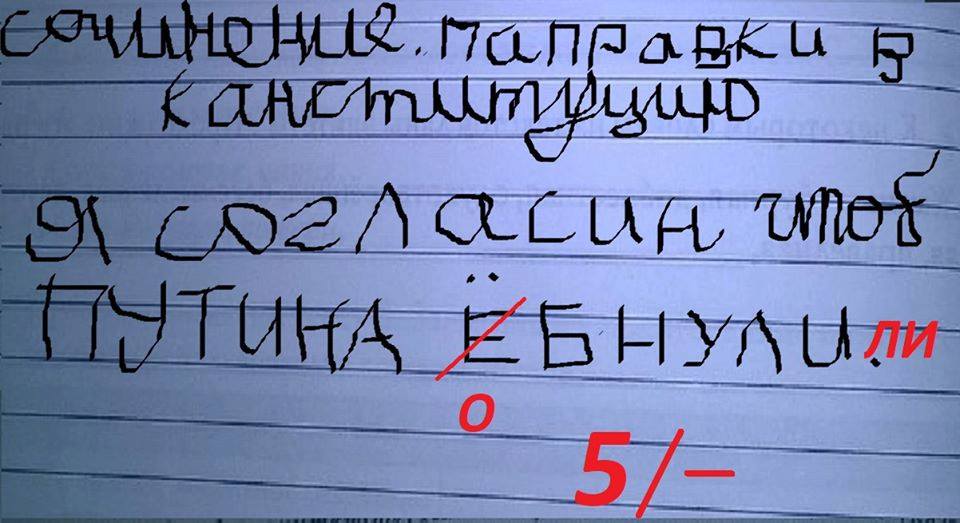 сочинение. паправки в
канституцию
я согласин чтоб
ПУТИНА ЁБНУЛИ. ЛИ
О
5/–